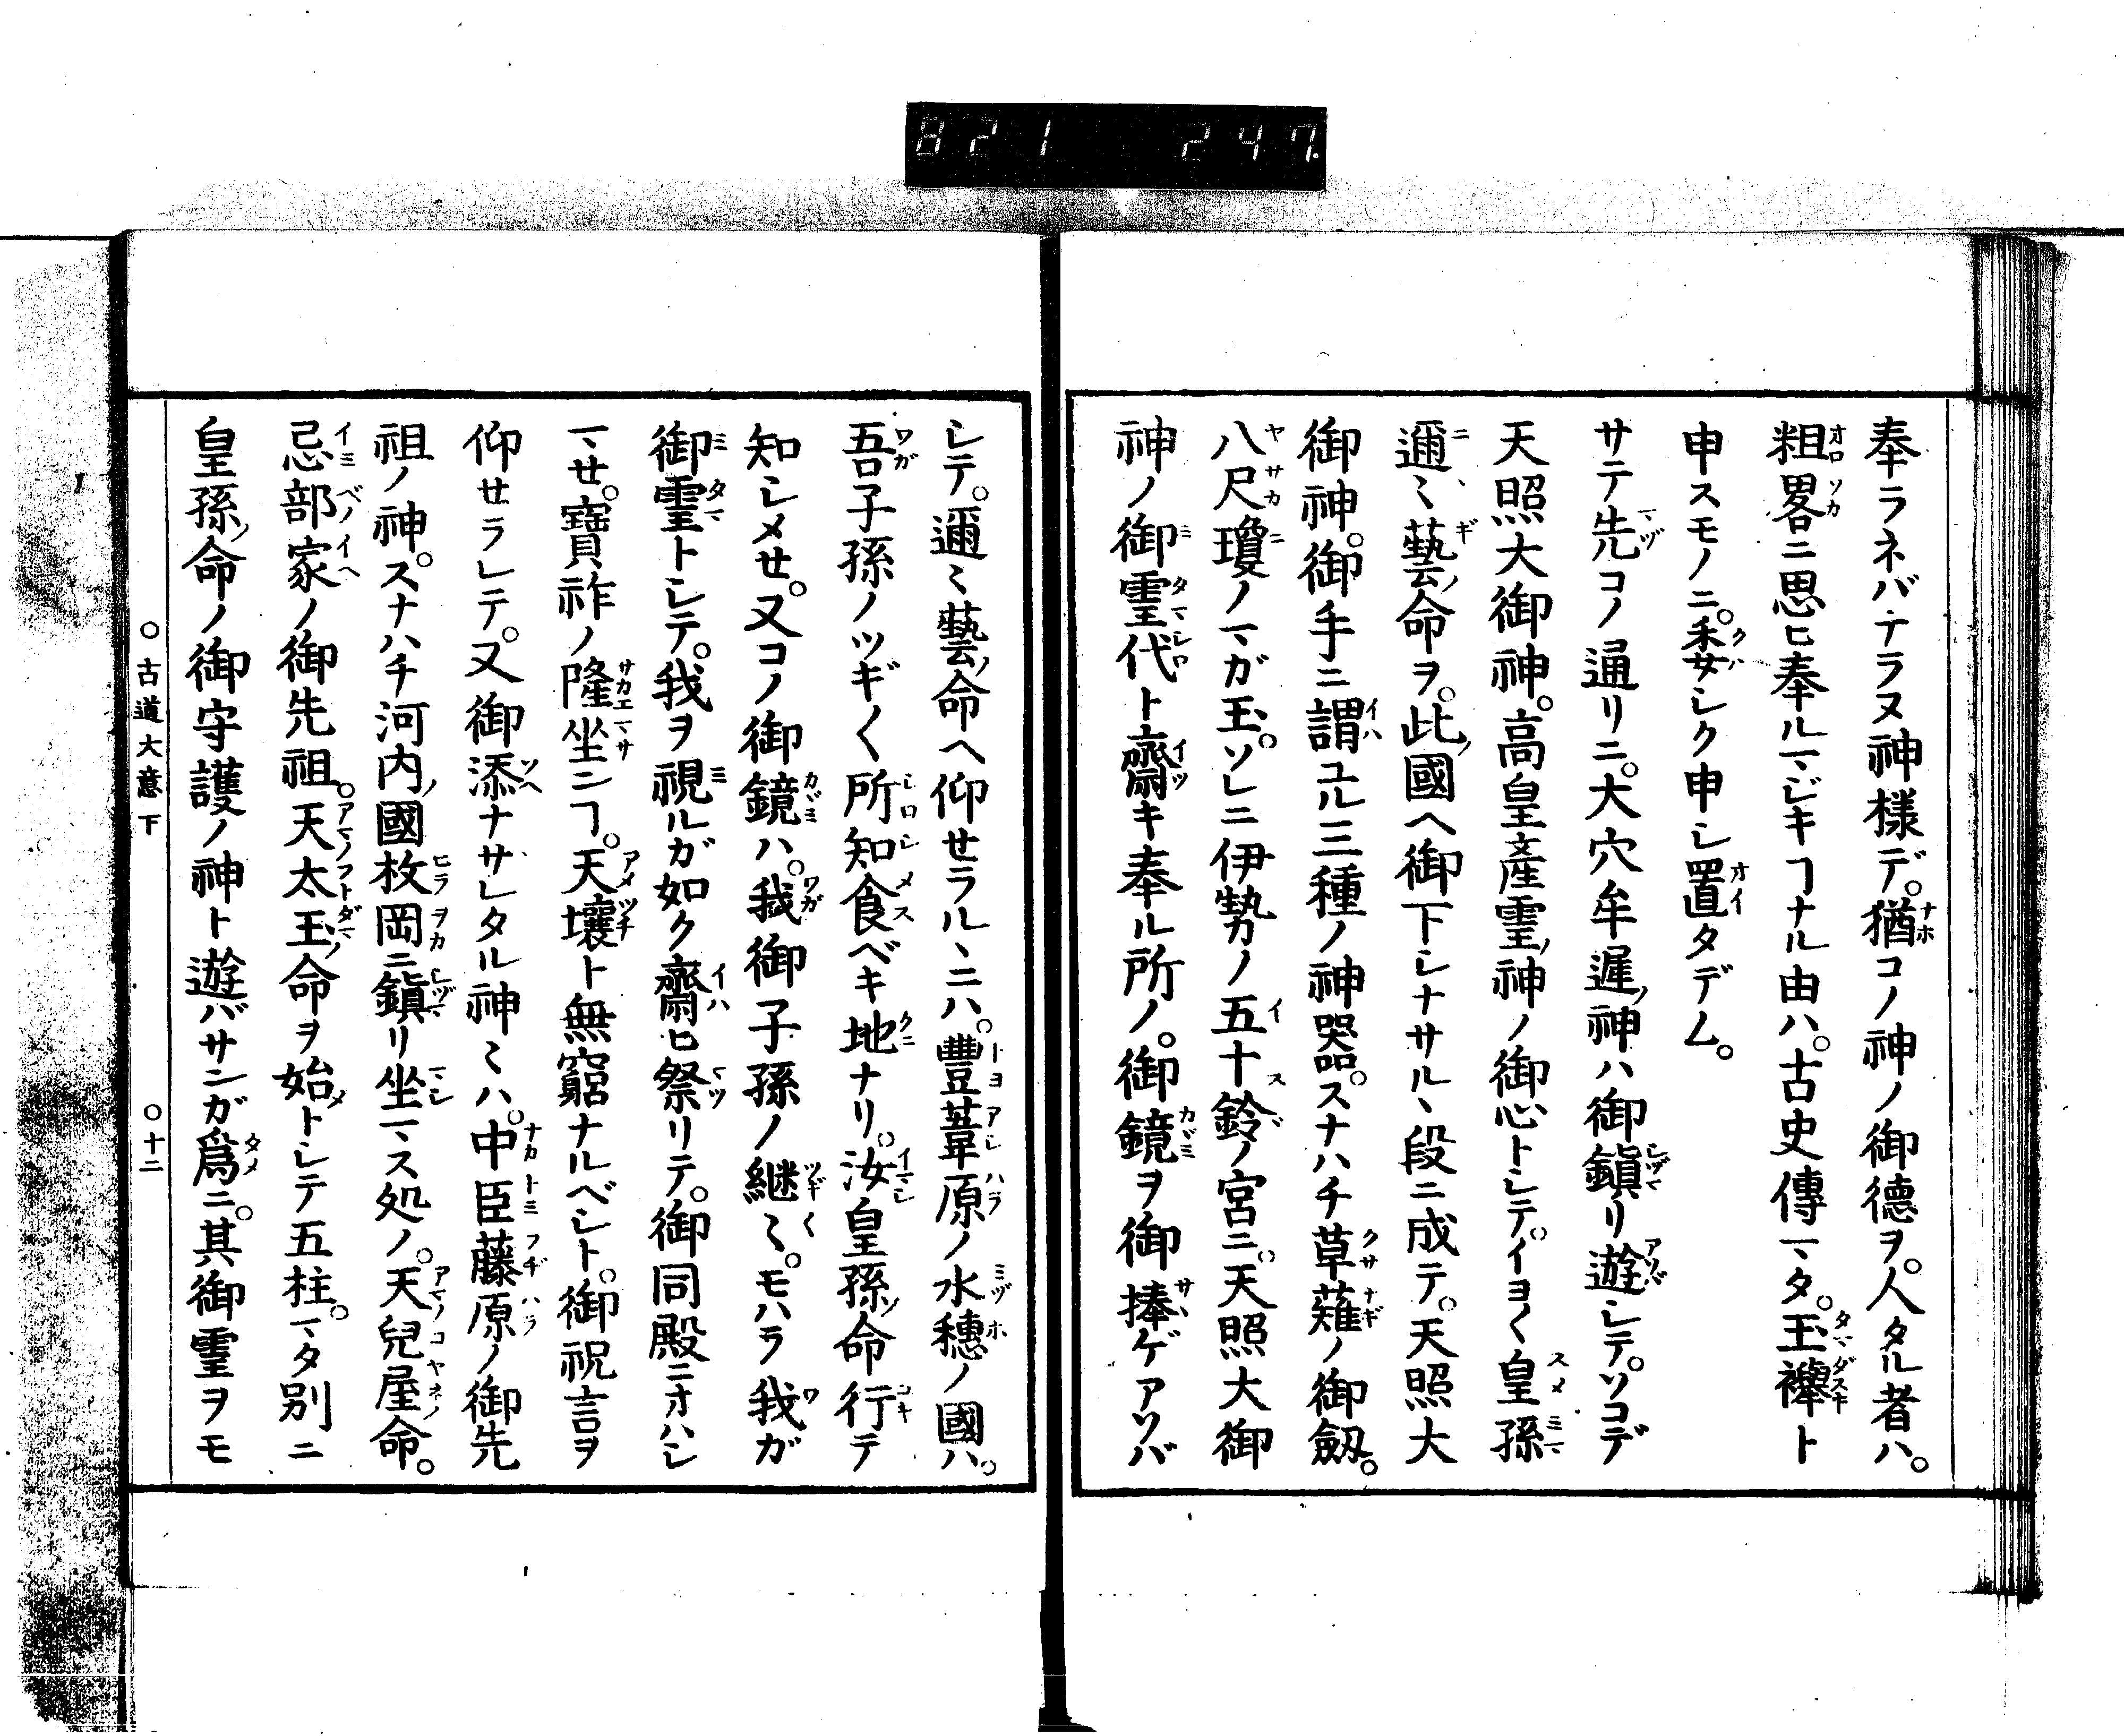 821 247
奉ラネバナラヌ神様デ。猶コノ神ノ御德ヲ。人タル者ハ。
粗畧ニ思ヒ奉ルマジキヿナル由ハ。古史傳マタ。玉襷ト
申スモノニ。委シク申シ置タデム。
サテ先コノ通リニ。大穴牟遲ノ神ハ御鎭リ遊シテ。ソコデ
天照大御神。高皇產霊ノ神ノ御心トシテ。イヨ〱皇孫
邇〻藝ノ命ヲ。此ノ國ヘ御下シナサルヽ段ニ成テ。天照大
御神。御手ニ謂ユル三種ノ神器。スナハチ草薙ノ御劔。
八尺瓊ノマガ玉。ソレニ伊勢ノ五十鈴ノ宮ニ。天照大御
神ノ御霊代ト齋キ奉ル所ノ。御鏡ヲ御捧ゲアソバ
シテ。邇〻藝ノ命ヘ仰セラルヽニハ。豐葦原ノ水穗ノ國ハ。
吾子孫ノツギ〱所知食ベキ地ナリ。汝皇孫ノ命行テ
知シメセ。又コノ御鏡ハ。我御子孫ノ継〻。モハラ我ガ
御霊トシテ。我ヲ視ルガ如ク齋ヒ祭リテ。御同殿ニオハシ
マセ。寶祚ノ隆坐ンヿ。天壤ト無窮ナルベシト。御祝言ヲ
仰セラレテ。又御添ナサレタル神〻ハ。中臣藤原ノ御先
祖ノ神。スナハチ河内ノ國枚岡ニ鎭リ坐マス処ノ。天兒屋命。
忌部家ノ御先祖。天太玉ノ命ヲ始トシテ五柱。マタ別ニ
皇孫ノ命ノ御守護ノ神ト遊バサンガ爲ニ。其御霊ヲモ
○古道大意下 ○十二